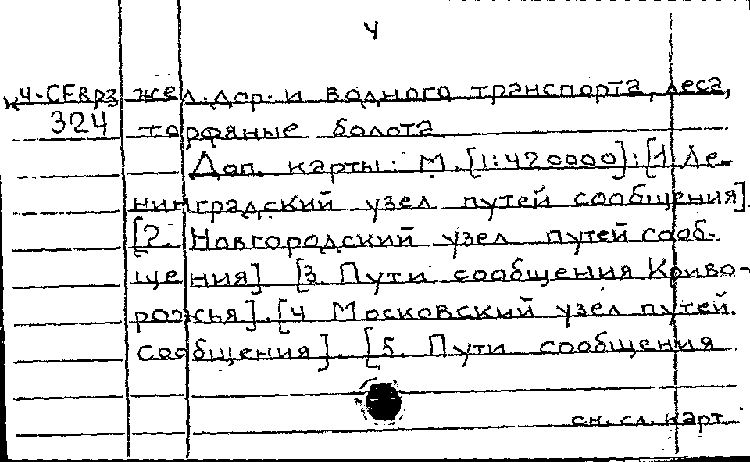 4
К4-СЕвр3 жел.дор. и водного транспорта, леса,
324 торфяные болота
Доп. карты: М.[1:420000]:[1.Ле-
нинградский узел путей сообщения]
[2. Новгородский узел путей сооб-
щения] [3. Пути сообщения Криво-
рожья].[4 Московский узел путей
сообщения]. [5. Пути сообщения
см. сл. карт.